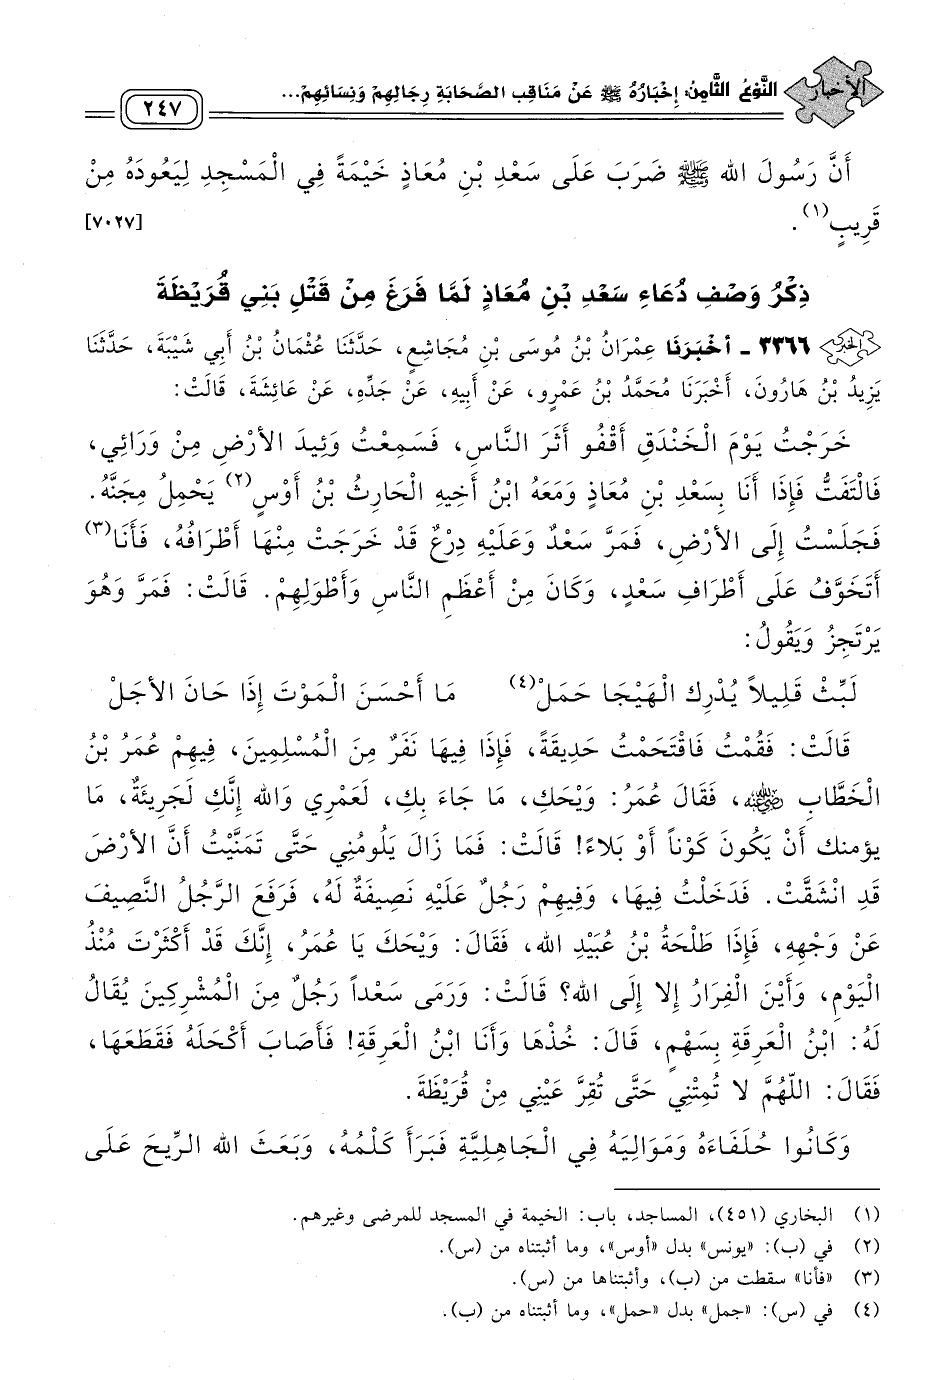 الأخبار
النَّوْعُ الثَّامِنُ: إِخْبَارُهُ ﷺ عَنْ مَنَاقِبِ الصَّحَابَةِ رِجَالِهِمْ وَنِسَائِهِمْ...
٢٤٧
أَنَّ رَسُولَ الله ﷺ ضَرَبَ عَلَى سَعْدِ بْنِ مُعَاذٍ خَيْمَةً فِي الْمَسْجِدِ لِيَعُودَهُ مِنْ
قَرِيبٍ(١). [٧٠٢٧]
ذِكْرُ وَصْفِ دُعَاءِ سَعْدِ بْنِ مُعَاذٍ لَمَّا فَرَغَ مِنْ قَتْلِ بَنِي قُرَيْظَةَ
٣٣٦٦ ـ أَخْبَرَنَا عِمْرَانُ بْنُ مُوسَى بْنِ مُجَاشِعٍ، حَدَّثَنَا عُثْمَانُ بْنُ أَبِي شَيْبَةَ، حَدَّثَنَا
يَزِيدُ بْنُ هَارُونَ، أَخْبَرَنَا مُحَمَّدُ بْنُ عَمْرٍو، عَنْ أَبِيهِ، عَنْ جَدِّهِ، عَنْ عَائِشَةَ، قَالَتْ:
خَرَجْتُ يَوْمَ الْخَنْدَقِ أَقْفُو أَثَرَ النَّاسِ، فَسَمِعْتُ وَئِيدَ الأَرْضِ مِنْ وَرَائِي،
فَالْتَفَتُّ فَإِذَا أَنَا بِسَعْدِ بْنِ مُعَاذٍ وَمَعَهُ ابْنُ أَخِيهِ الْحَارِثُ بْنُ أَوْسٍ(٢) يَحْمِلُ مِجَنَّهُ.
فَجَلَسْتُ إِلَى الأَرْضِ، فَمَرَّ سَعْدٌ وَعَلَيْهِ دِرْعٌ قَدْ خَرَجَتْ مِنْهَا أَطْرَافُهُ، فَأَنَا(٣)
أَتَخَوَّفُ عَلَى أَطْرَافِ سَعْدٍ، وَكَانَ مِنْ أَعْظَمِ النَّاسِ وَأَطْوَلِهِمْ. قَالَتْ: فَمَرَّ وَهُوَ
يَرْتَجِزُ وَيَقُولُ:
لَبِّثْ قَلِيلاً يُدْرِكِ الْهَيْجَا حَمَلْ(٤) مَا أَحْسَنَ الْمَوْتَ إِذَا حَانَ الأَجَلْ
قَالَتْ: فَقُمْتُ فَاقْتَحَمْتُ حَدِيقَةً، فَإِذَا فِيهَا نَفَرٌ مِنَ الْمُسْلِمِينَ، فِيهِمْ عُمَرُ بْنُ
الْخَطَّابِ رضي الله عنه، فَقَالَ عُمَرُ: وَيْحَكِ، مَا جَاءَ بِكِ، لَعَمْرِي وَالله إِنَّكِ لَجَرِيئَةٌ، مَا
يؤمنك أَنْ يَكُونَ كَوْناً أَوْ بَلاءً! قَالَتْ: فَمَا زَالَ يَلُومُنِي حَتَّى تَمَنَّيْتُ أَنَّ الأَرْضَ
قَدِ انْشَقَّتْ. فَدَخَلْتُ فِيهَا، وَفِيهِمْ رَجُلٌ عَلَيْهِ نَصِيفَةٌ لَهُ، فَرَفَعَ الرَّجُلُ النَّصِيفَ
عَنْ وَجْهِهِ، فَإِذَا طَلْحَةُ بْنُ عُبَيْدِ الله، فَقَالَ: وَيْحَكَ يَا عُمَرُ، إِنَّكَ قَدْ أَكْثَرْتَ مُنْذُ
الْيَوْمِ، وَأَيْنَ الْفِرَارُ إِلا إِلَى الله؟ قَالَتْ: وَرَمَى سَعْداً رَجُلٌ مِنَ الْمُشْرِكِينَ يُقَالُ
لَهُ: ابْنُ الْعَرِقَةِ بِسَهْمٍ، قَالَ: خُذْهَا وَأَنَا ابْنُ الْعَرِقَةِ! فَأَصَابَ أَكْحَلَهُ فَقَطَعَهَا،
فَقَالَ: اللّهُمَّ لا تُمِتْنِي حَتَّى تُقِرَّ عَيْنِي مِنْ قُرَيْظَةَ.
وَكَانُوا حُلَفَاءَهُ وَمَوَالِيَهُ فِي الْجَاهِلِيَّةِ فَبَرَأَ كَلْمُهُ، وَبَعَثَ الله الرِّيحَ عَلَى
(١) البخاري (٤٥١)، المساجد، باب: الخيمة في المسجد للمرضى وغيرهم.
(٢) في (ب): «يونس» بدل «أوس»، وما أثبتناه من (س).
(٣) «فأنا» سقطت من (ب)، وأثبتناها من (س).
(٤) في (س): «جمل» بدل «حمل»، وما أثبتناه من (ب).